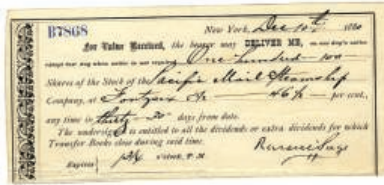 B7868 New York, Dec 10th 1880
For Value Received, the bearer may DELIVER ME, on one day's notice
except last day when notice is not required, One hundred 100
Shares of the Stock of the Pacific Mail Steamship
Company, at Fortysix 46 per cent.,
any time in thirty 30 days from date.
The undersigned is entitled to all the dividends or extra dividends for which
Transfer Books close during said time.
Expires o'clock, P. M. Russell Sage